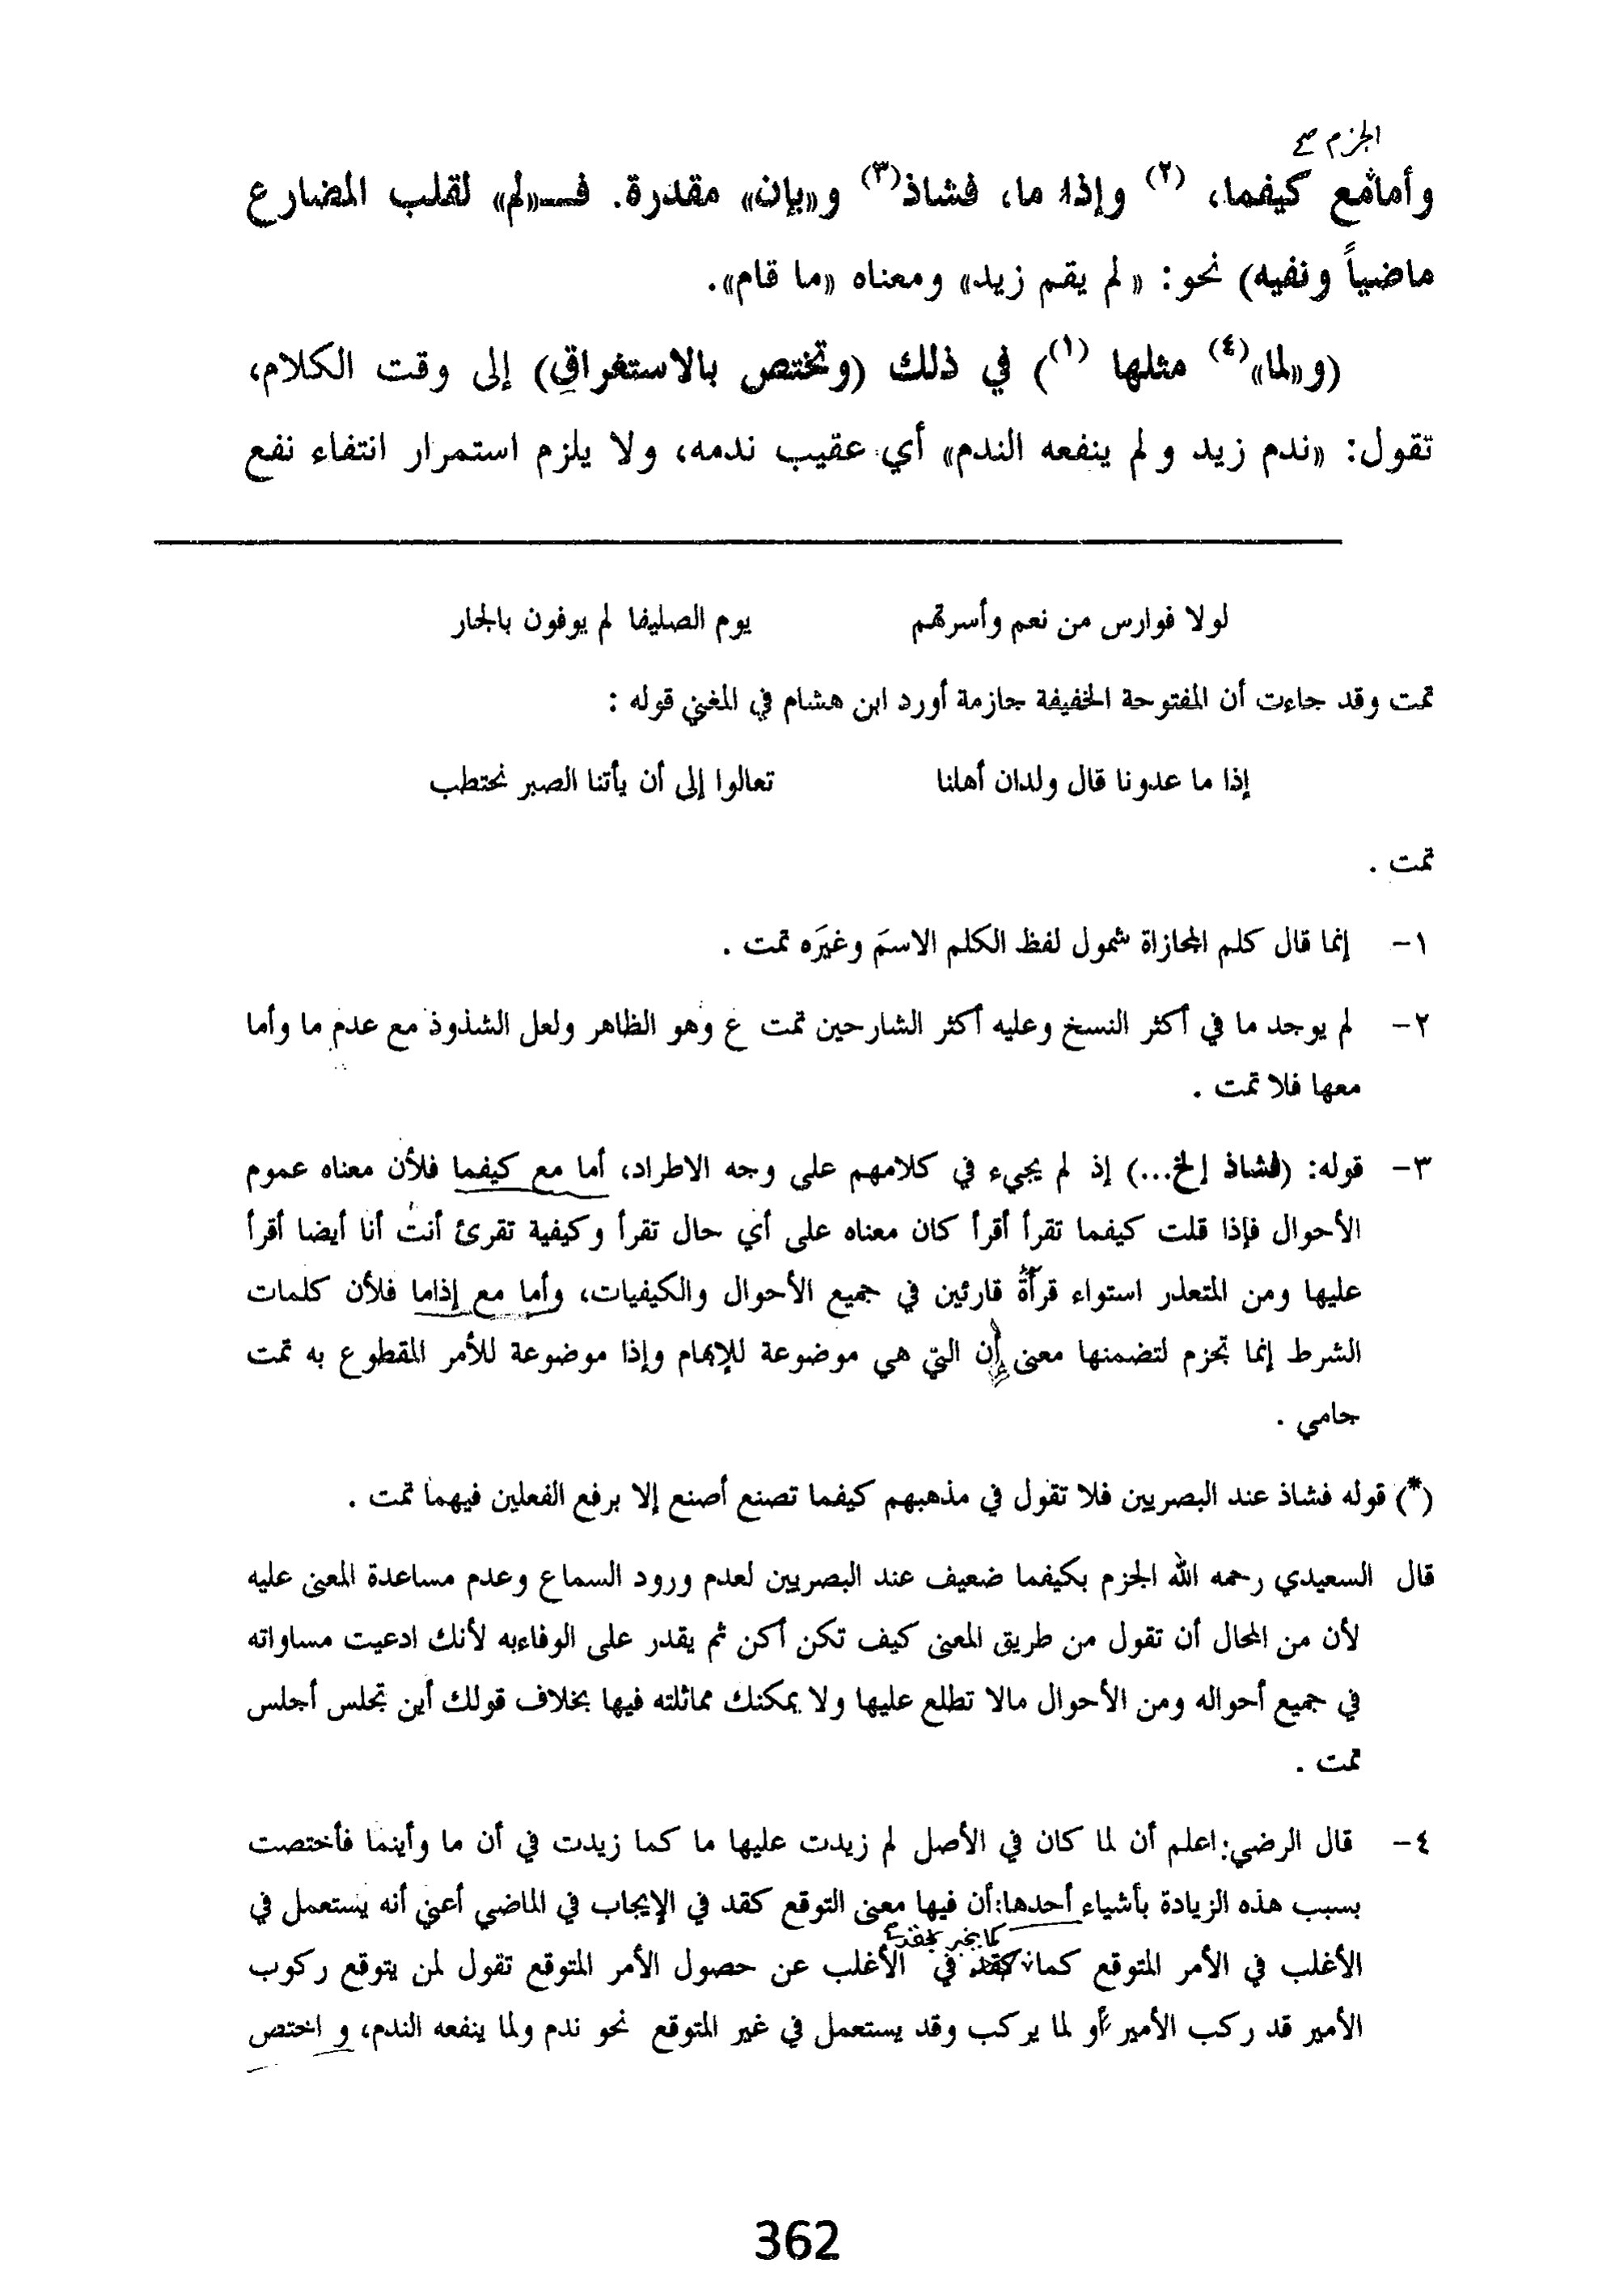 الجزم صح
وأما مع كيفما، (٢) وإذا ما، فشاذ(٣) و«بإن» مقدرة. فـ«لم» لقلب المضارع
ماضياً ونفيه) نحو: « لم يقم زيد» ومعناه «ما قام».
(و«لما»(٤) مثلها (١)) في ذلك (وتختص بالاستغراق) إلى وقت الكلام،
تقول: «ندم زيد و لم ينفعه الندم» أي عقيب ندمه، ولا يلزم استمرار انتفاء نفع
لولا فوارس من نعم وأسرتهم يوم الصليفا لم يوفون بالجار
تمت وقد جاءت أن المفتوحة الخفيفة جازمة أورد ابن هشام في المغني قوله :
إذا ما عدونا قال ولدان أهلنا تعالوا إلى أن يأتنا الصبر نحتطب
تمت .
١- إنما قال كلم المجازاة شمول لفظ الكلم الاسمَ وغيَره تمت .
٢- لم يوجد ما في أكثر النسخ وعليه أكثر الشارحين تمت ع وهو الظاهر ولعل الشذوذ مع عدم ما وأما
معها فلا تمت .
٣- قوله: (فشاذ إلخ...) إذ لم يجيء في كلامهم على وجه الاطراد، أما مع كيفما فلأن معناه عموم
الأحوال فإذا قلت كيفما تقرأ أقرأ كان معناه على أي حال تقرأ وكيفية تقرئ أنت أنا أيضا أقرأ
عليها ومن المتعذر استواء قرأة قارئين في جميع الأحوال والكيفيات، وأما مع إذاما فلأن كلمات
الشرط إنما تجزم لتضمنها معنى إن التي هي موضوعة للإبهام وإذا موضوعة للأمر المقطوع به تمت
جامي .
(*) قوله فشاذ عند البصريين فلا تقول في مذهبهم كيفما تصنع أصنع إلا برفع الفعلين فيهما تمت .
قال السعيدي رحمه الله الجزم بكيفما ضعيف عند البصريين لعدم ورود السماع وعدم مساعدة المعنى عليه
لأن من المحال أن تقول من طريق المعنى كيف تكن أكن ثم يقدر على الوفاءبه لأنك ادعيت مساواته
في جميع أحواله ومن الأحوال مالا تطلع عليها ولا يمكنك مماثلته فيها بخلاف قولك أين تجلس أجلس
تمت .
٤- قال الرضي: اعلم أن لما كان في الأصل لم زيدت عليها ما كما زيدت في أن ما وأينما فأختصت
بسبب هذه الزيادة بأشياء أحدها: أن فيها معنى التوقع كقد في الإيجاب في الماضي أعني أنه يستعمل في
كما يخبر بقد
الأغلب في الأمر المتوقع كما كقد في الأغلب عن حصول الأمر المتوقع تقول لمن يتوقع ركوب
الأمير قد ركب الأمير أو لما يركب وقد يستعمل في غير المتوقع نحو ندم ولما ينفعه الندم، و اختص
362